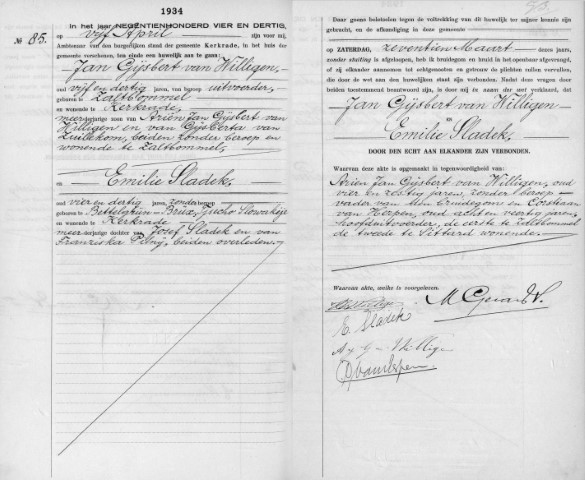 1934
In het jaar NEGENTIENHONDERD VIER EN DERTIG,
№ 85.
op vijf April zijn voor mij,
Ambtenaar van den burgerlijken stand der gemeente Kerkrade, in het huis der
gemeente verschenen, ten einde een huwelijk aan te gaan:
Jan Gijsbert van Willigen
oud vijf en dertig jaren, van beroep uitvoerder,
geboren te Zaltbommel
en wonende te Kerkrade,
meerderjarige zoon van Ariën Jan Gijsbert van
Willigen en van Gijsberta van
Zuilekom, beiden zonder beroep en
wonende te Zaltbommel,
en Emilie Sladek,
oud vier en dertig jaren, zonder beroep,
geboren te Bettelgrün-Brüx Tjecho Slowakije
en wonende te Kerkrade
meerderjarige dochter van Josef Sladek en van
Franziska Pilny, beiden overleden.
Deze gaven beleteden tegen de voltrekking van dit huwelijk te mijner kennis zijn
gebracht, en de afkondiging in deze gemeente
op ZATERDAG, zeventien Maart dezes jaars,
zonder stuiting is afgeloopen, heb ik bruidegom en bruid in het openbaar afgevraagd,
of zij elkander aannemen tot echtgenooten en getrouw de plichten zullen vervullen,
die door de wet aan den huwelijken staat zijn verbonden. Nadat deze vragen door
beiden toestemmend beantwoord zijn, heb ik, in naam der wet verklaard, dat
Jan Gijsbert van Willigen
en
Emilie Sladek
DOOR DEN ECHT AAN ELKANDER ZIJN VERBONDEN.
Waarvan deze akte is opgemaakt in tegenwoordigheid van:
Ariën Jan Gijsbert van Willigen, oud
vier en zestig jaren, zonder beroep
vader van den bruidegom en Bastiaan
van Herpen, oud acht en veertig jaren,
hoofduitvoerder, de eerste te Zaltbommel
de tweede te Sittard wonende.
Waarvan akte, welke is voorgelezen.
E. Sladek